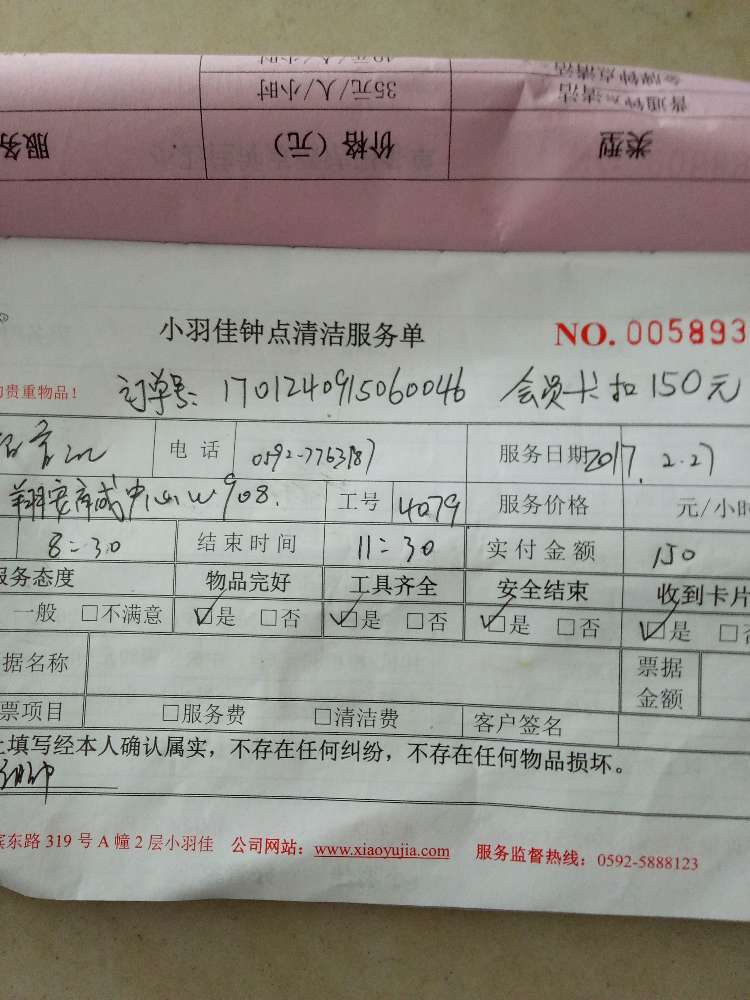 40元/人/小时 金牌钟点清洁
35元/人/小时 普通钟点清洁
服务 价格（元） 类型
小羽佳钟点清洁服务单 NO. 005893
贵重物品！ 订单号: 1701240915060046 会员卡扣150元
电话 0592-7763187 服务日期 2017.2.27
翔安商城中心W908. 工号 4079 服务价格 元/小时
8:30 结束时间 11:30 实付金额 150
服务态度 物品完好 工具齐全 安全结束 收到卡片
一般 □不满意 ☑是 □否 ☑是 □否 ☑是 □否 ☑是 □否
据名称 票据金额
票项目 □服务费 □清洁费 客户签名
上填写经本人确认属实，不存在任何纠纷，不存在任何物品损坏。
滨东路 319 号 A 幢 2 层小羽佳 公司网站：www.xiaoyujia.com 服务监督热线：0592-5888123